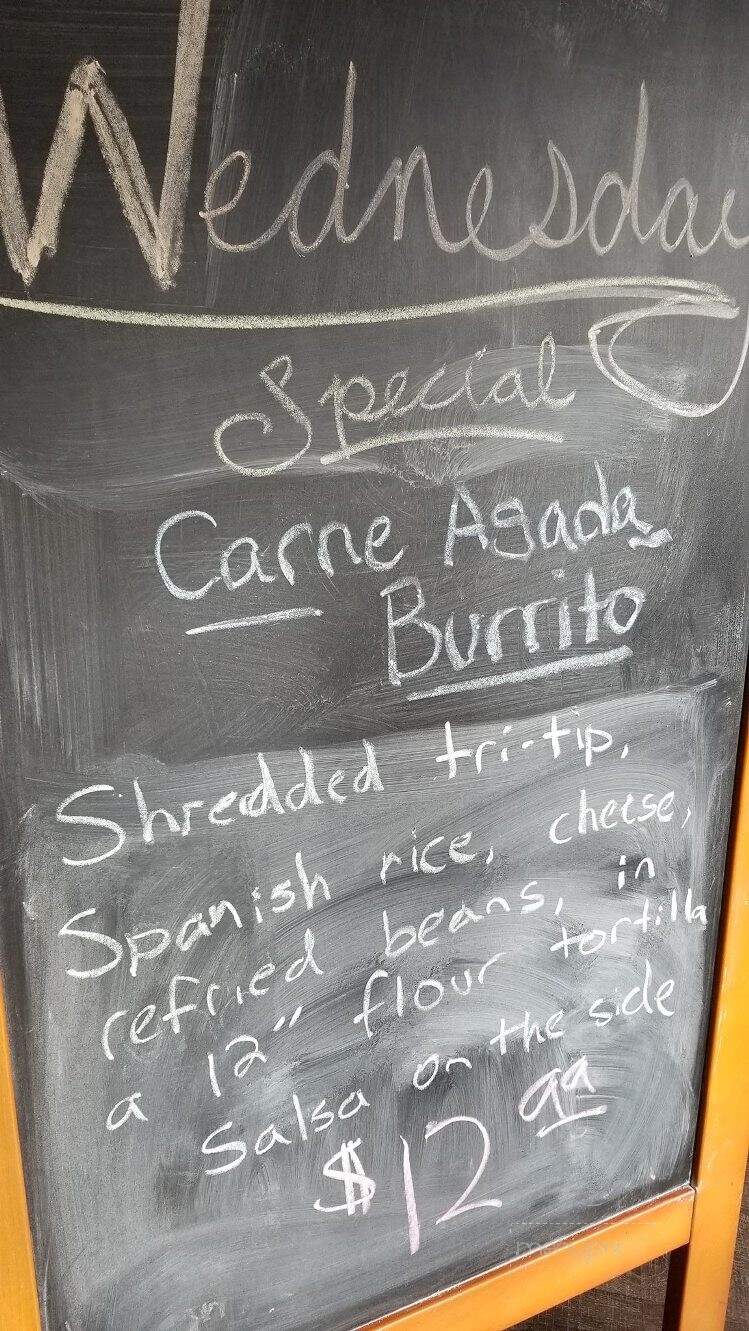 Wednesday
Special
Carne Asada
Burrito
Shredded tri-tip,
Spanish rice, cheese,
refried beans, in
a 12" flour tortilla
Salsa on the side
$12 99